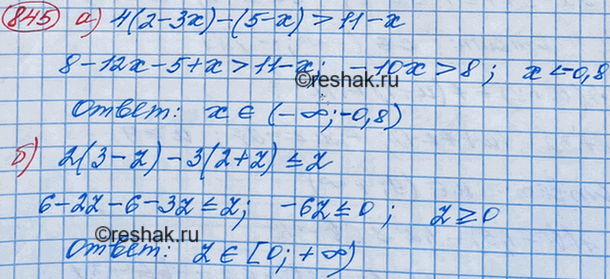 845 а) 4(2-3x)-(5-x)>11-x
8-12x-5+x>11-x; -10x>8; x<-0,8
©reshak.ru
Ответ: x∈(-∞;-0,8)
б) 2(3-z)-3(2+z)≤z
6-2z-6-3z≤z; -6z≤0; z≥0
©reshak.ru
Ответ: z∈[0;+∞)